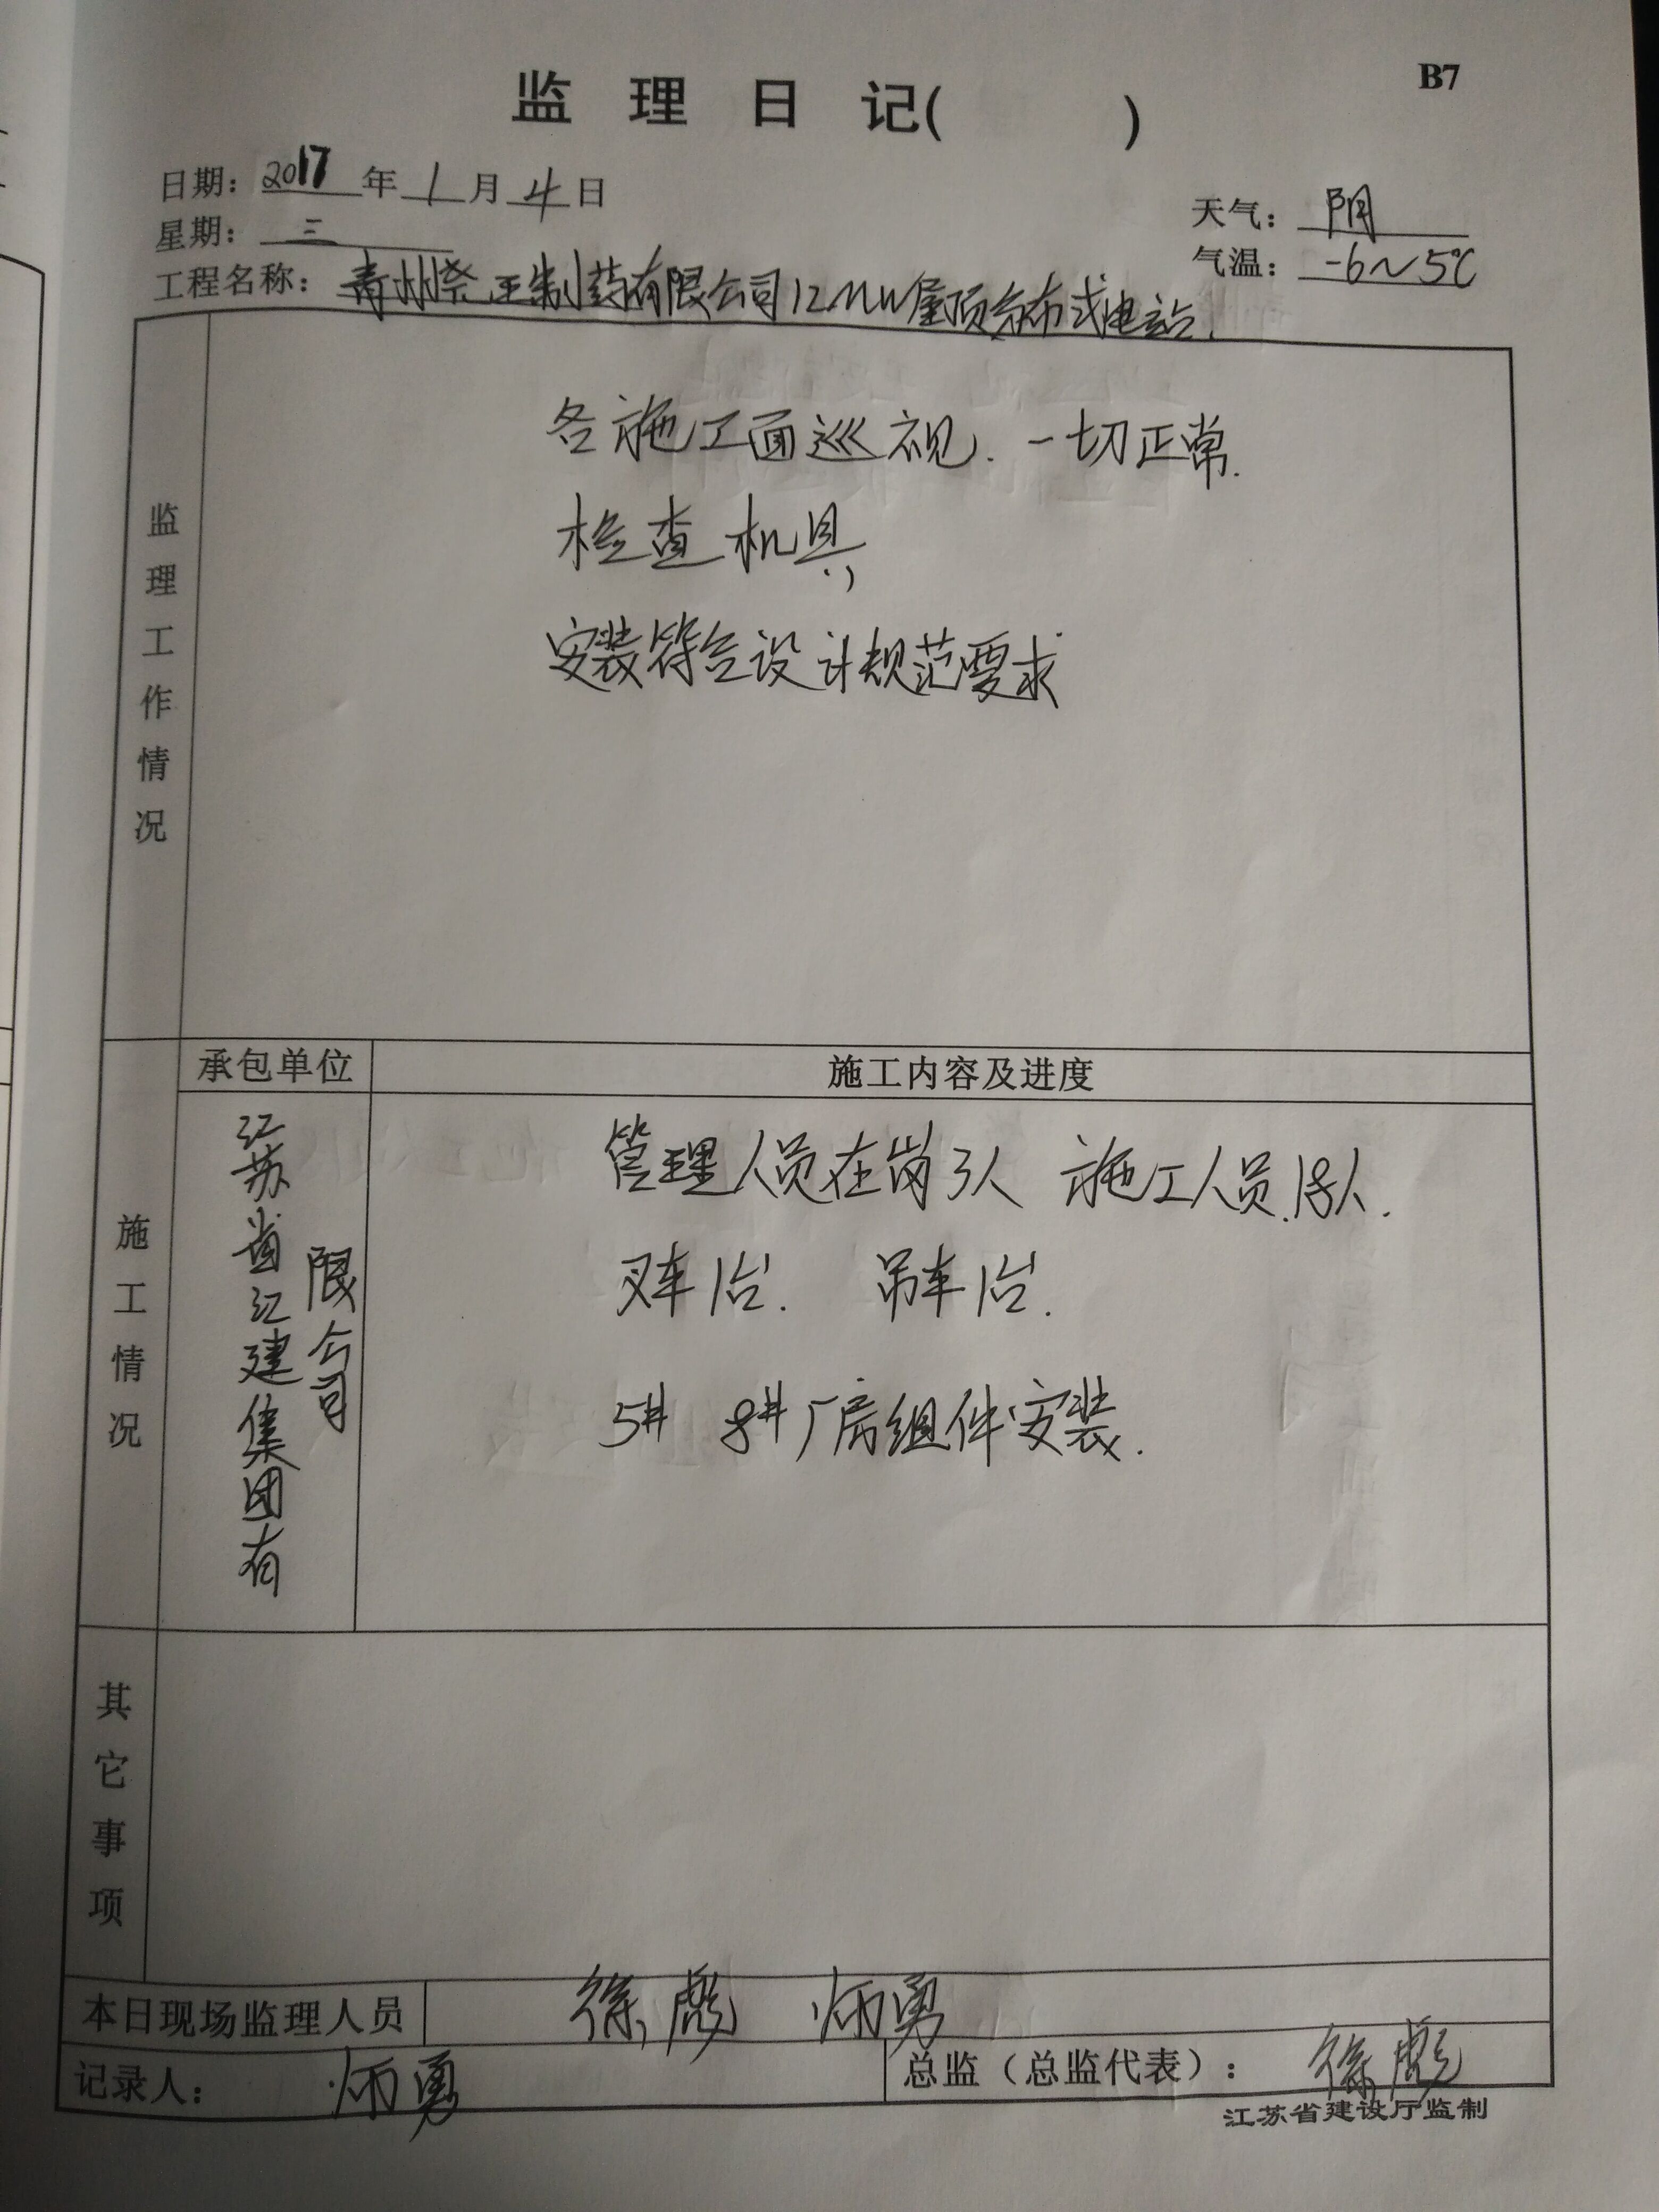 B7
监理日记( )
日期：2017年1月4日
星期：三
天气：阴
气温：-6～5℃
工程名称：青州尧王制药有限公司12MW屋顶分布式电站.
监理工作情况
各施工面巡视.一切正常.
检查机具,
安装符合设计规范要求
施工情况
承包单位
施工内容及进度
江苏省江建集团有
限公司
管理人员在岗3人 施工人员18人.
叉车1台. 吊车1台.
5# 8#厂房组件安装.
其它事项
本日现场监理人员 徐彪 炳勇
记录人：炳勇
总监（总监代表）：徐彪
江苏省建设厅监制